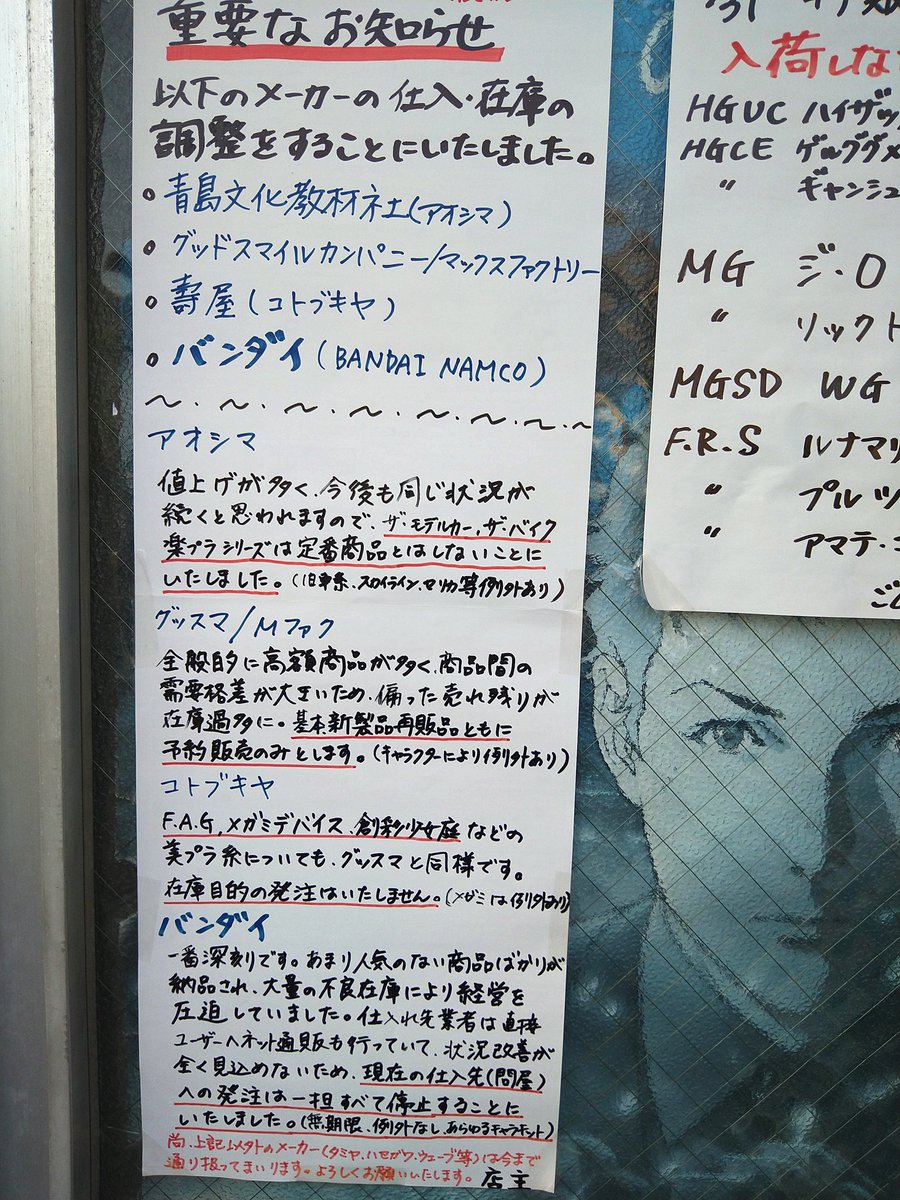 重要なお知らせ
以下のメーカーの仕入・在庫の
調整をすることにいたしました。
• 青島文化教材社(アオシマ)
• グッドスマイルカンパニー/マックスファクトリー
• 壽屋(コトブキヤ)
• バンダイ(BANDAI NAMCO)
〜.〜.〜.〜.〜.〜.〜
アオシマ
値上げが多く、今後も同じ状況が
続くと思われますので、ザ・モデルカー、ザ・バイク
楽プラシリーズは定番商品とはしないことに
いたしました。(旧車系、スカイライン、マリカ等例外あり)
グッスマ/Mファク
全般的に高額商品が多く、商品間の
需要格差が大きいため、偏った売れ残りが
在庫過多に。基本新製品再販品ともに
予約販売のみとします。(キャラクターにより例外あり)
コトブキヤ
F.A.G、メガミデバイス、創彩少女庭などの
美プラ系についても、グッスマと同様です。
在庫目的の発注はいたしません。(メガミは例外あり)
バンダイ
一番深刻です。あまり人気のない商品ばかりが
納品され、大量の不良在庫により経営を
圧迫していました。仕入れ先業者は直接
ユーザーへネット通販も行っていて、状況改善が
全く見込めないため、現在の仕入先(問屋)
への発注は一担すべて停止することに
いたしました。(無期限、例外なし、あらゆるキャラキット)
尚、上記以外のメーカー(タミヤ、ハセガワ、ウェーブ等)は今まで
通り扱ってまいります。よろしくお願いいたします。 店主
入荷しな
HGUC ハイザッ
HGCE ゲルググメ
〃 ギャンシュ
MG ジ・O
〃 リックド
MGSD WG
F.R.S ルナマリ
〃 プルツ
〃 アマテ・